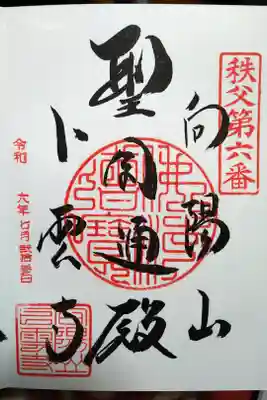 秩父第六番
向陽山
聖円通殿
卜雲寺
令和 六年七月